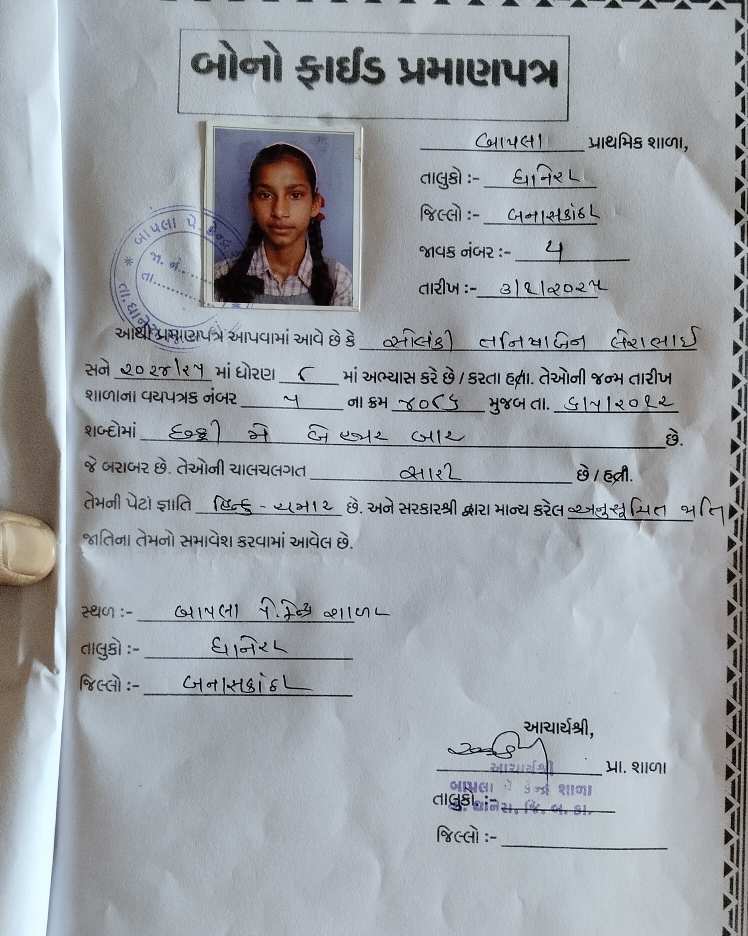 બોનો ફાઈડ પ્રમાણપત્ર
બાપલા પ્રાથમિક શાળા,
તાલુકો :- ધાનેરા
જિલ્લો :- બનાસકાંઠા
જાવક નંબર :- ૫
તારીખ :- ૩/૧/૨૦૨૫
* બાપલા પે કેન્દ્ર
જા. નં.
તા.
તા.ધાને
આથી પ્રમાણપત્ર આપવામાં આવે છે કે સોલંકી તનિષાબેન
સને ૨૦૨૪/૨૫ માં ધોરણ ૮ માં અભ્યાસ કરે છે / કરતા હતા. તેઓની જન્મ તારીખ
શાળાના વયપત્રક નંબર ૫ ના ક્રમ ૪૦૮૬ મુજબ તા. ૬/૫/૨૦૧૨
શબ્દોમાં છઠ્ઠી મે બે હજાર બાર છે.
જે બરાબર છે. તેઓની ચાલચલગત સારી છે / હતી.
તેમની પેટા જ્ઞાતિ હિન્દુ - ચમાર છે. અને સરકારશ્રી દ્વારા માન્ય કરેલ અનુસૂચિત જાતિ
જાતિના તેમનો સમાવેશ કરવામાં આવેલ છે.
સ્થળ :- બાપલા પે. કેન્દ્ર શાળા
તાલુકો :- ધાનેરા
જિલ્લો :- બનાસકાંઠા
આચાર્યશ્રી,
આચાર્યશ્રી
પ્રા. શાળા
બાપલા પે કેન્દ્ર શાળા
તાલુકો :-
તા. ધાનેરા, જિ. બ. કાં.
જિલ્લો :-